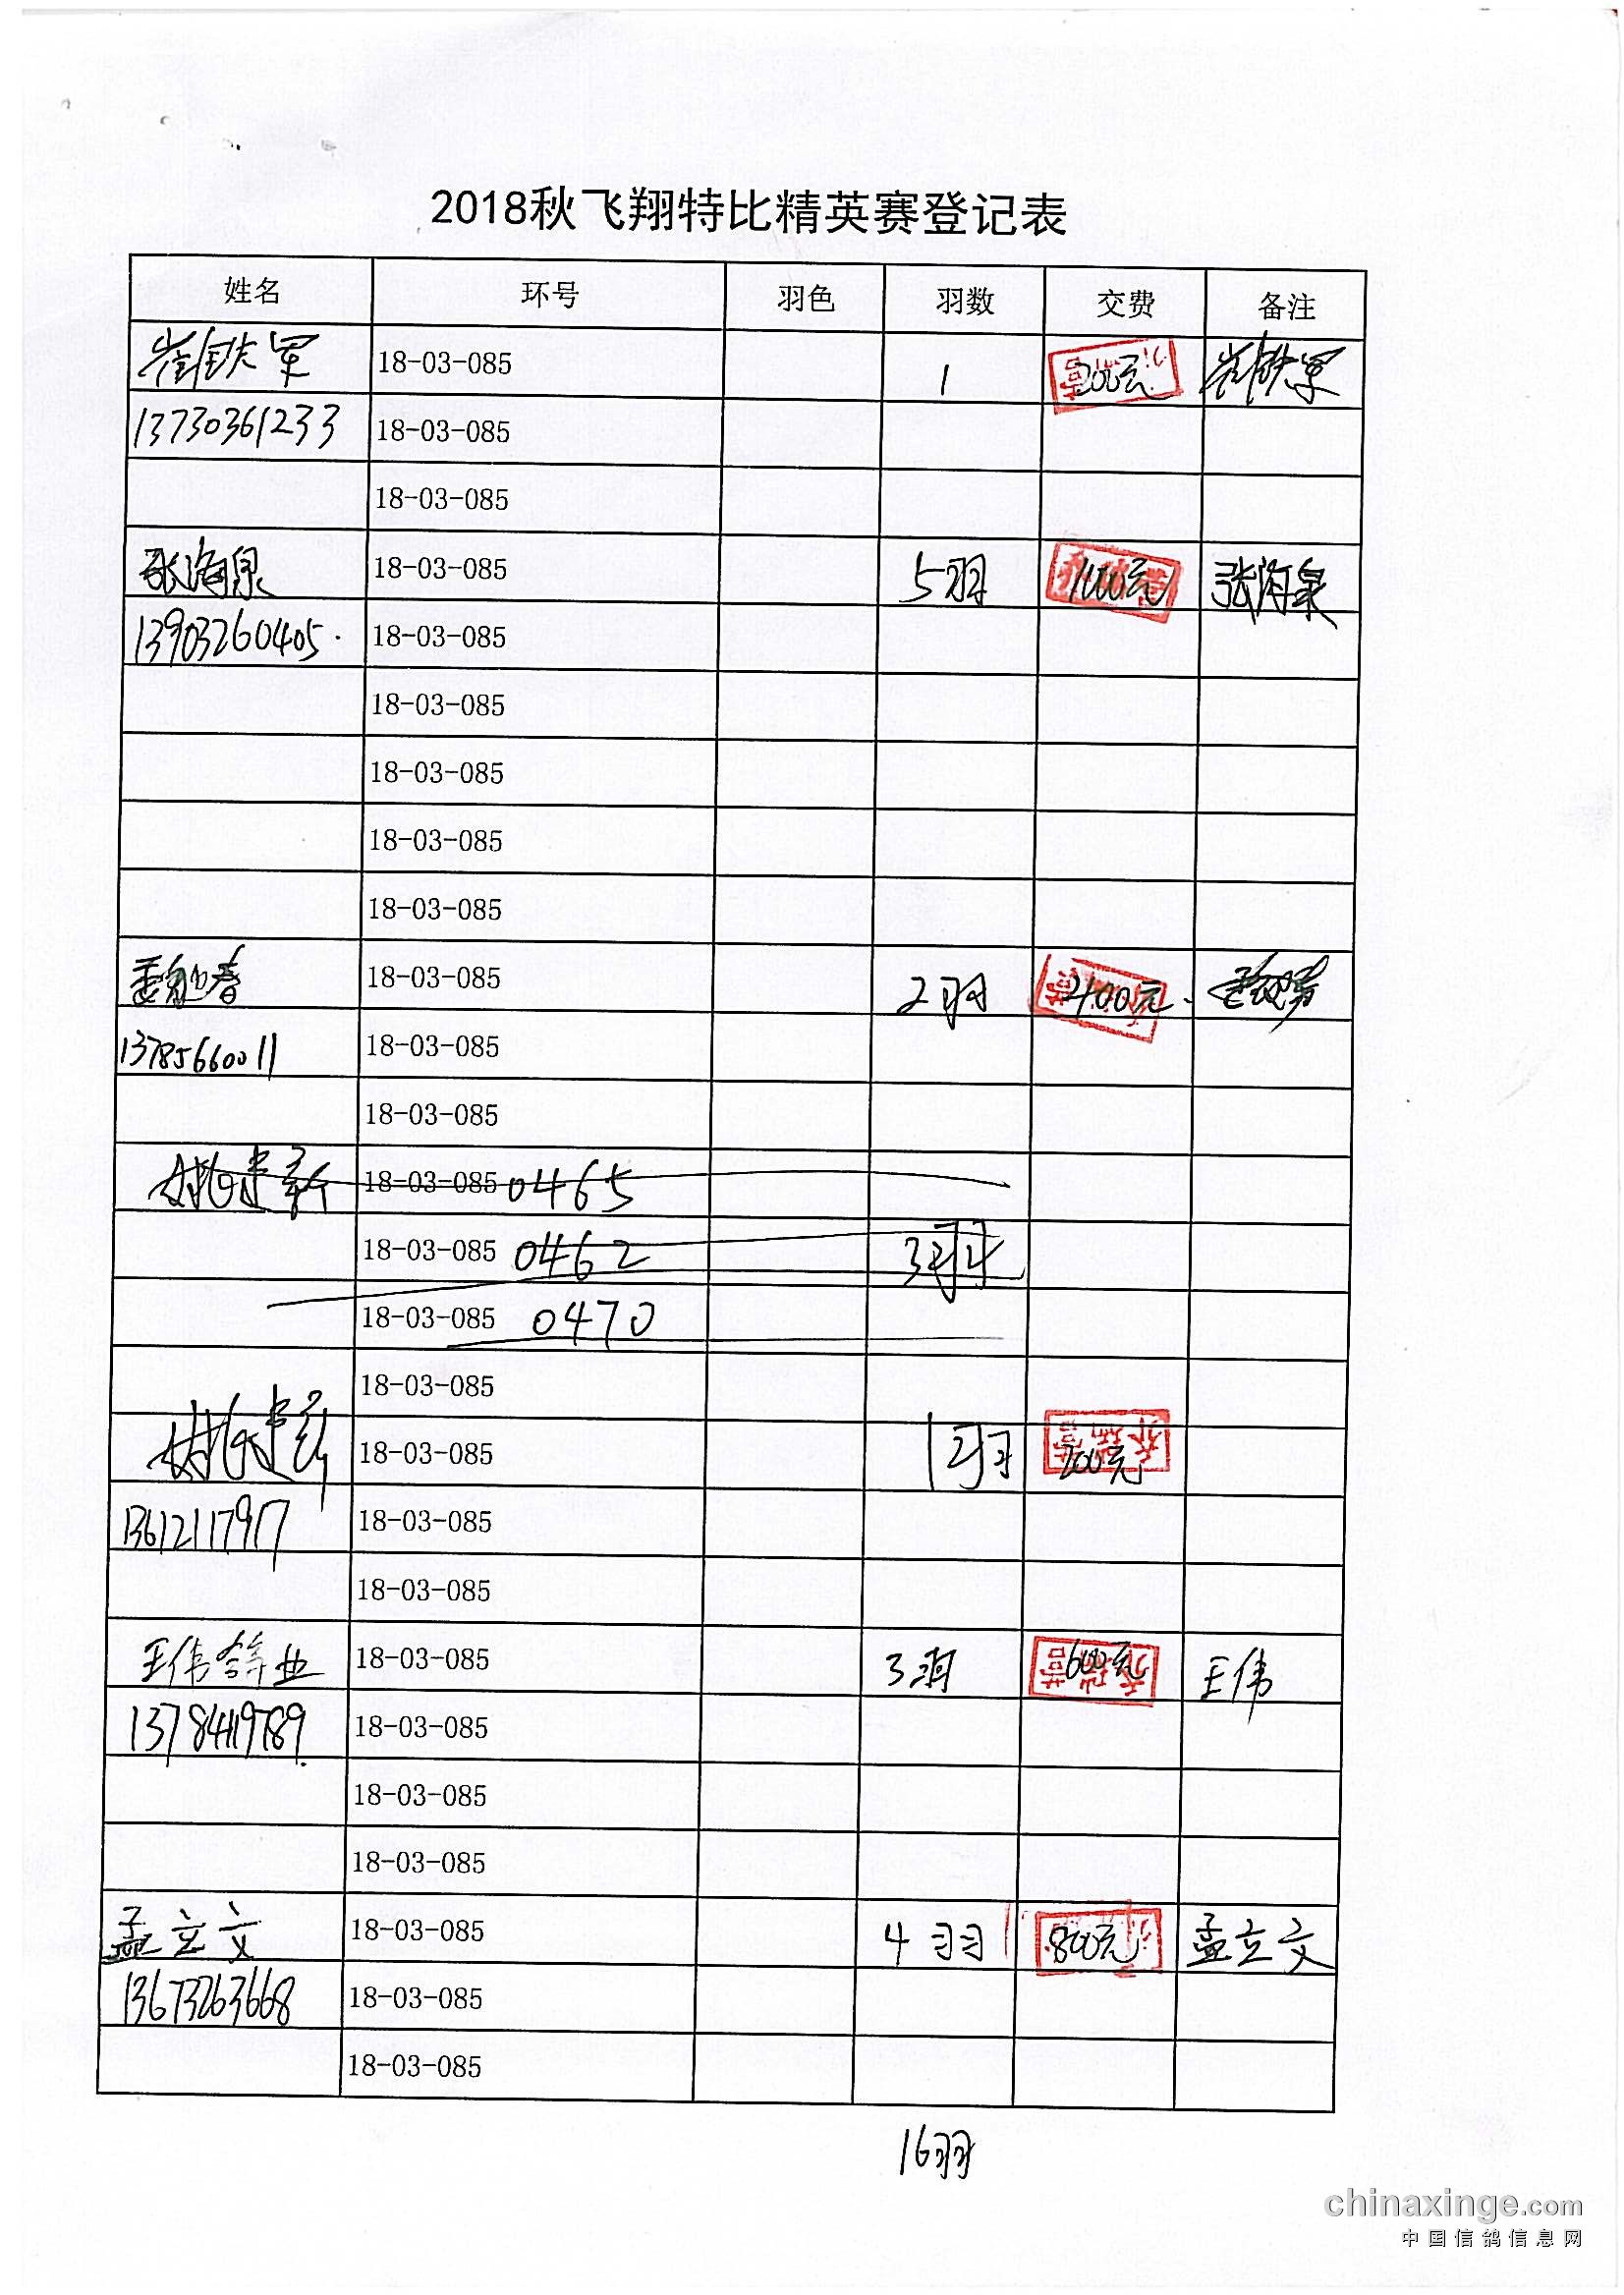 2018秋飞翔特比精英赛登记表
姓名 环号 羽色 羽数 交费 备注
崔铁军 18-03-085 1 200元 崔铁军
13730361233 18-03-085
18-03-085
张海泉 18-03-085 5羽 1000元 张海泉
13903260405. 18-03-085
18-03-085
18-03-085
18-03-085
18-03-085
18-03-085 2羽 400元
13785660011 18-03-085
18-03-085
姚建新 18-03-085 0465
18-03-085 0462 3羽
18-03-085 0470
18-03-085
姚建新 18-03-085 1羽 200元
13612117917 18-03-085
18-03-085
王伟鸽业 18-03-085 3羽 600元 王伟
13784119789 18-03-085
18-03-085
18-03-085
孟立文 18-03-085 4羽 800元 孟立文
13673263668 18-03-085
18-03-085
16羽
chinaxinge.com
中国信鸽信息网